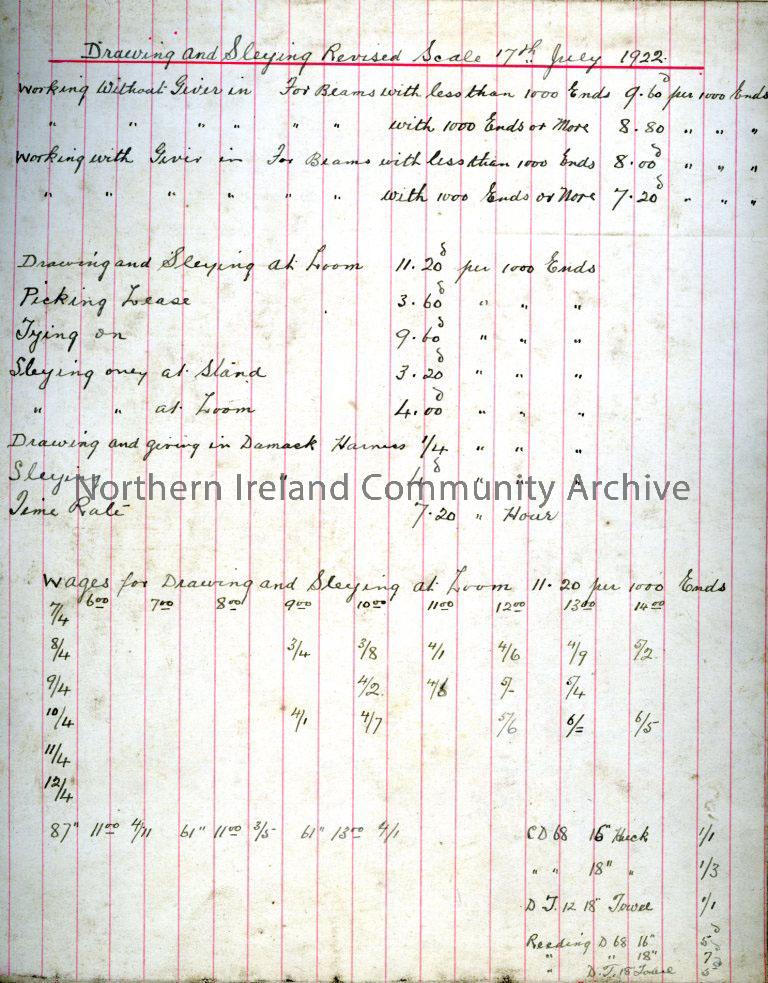 Drawing and Sleying Revised Scale 17th July 1922.
Working Without Giver in For Beams with less than 1000 Ends 9.60d per 1000 Ends
" " " " " " with 1000 Ends or More 8.80 " " "
Working with Giver in For Beams with less than 1000 Ends 8.00d " " "
" " " " " " with 1000 Ends or More 7.20d " " "
Drawing and Sleying at Loom 11.20d per 1000 Ends
Picking Lease 3.60d " " "
Tying on 9.60d " " "
Sleying oney at Stand 3.20d " " "
" " at Loom 4.00d " " "
Drawing and giving in Damask Harness 1/4 " " "
Sleying " 4d " " "
Northern Ireland Community Archive
Time Rate 7.20 " Hour
Wages for Drawing and Sleying at Loom 11.20 per 1000 Ends
7/4 600 700 800 900 1000 1100 1200 1300 1400
8/4 3/4 3/8 4/1 4/6 4/9 5/2
9/4 4/2 5/- 5/4
10/4 4/1 4/7 5/6 6/= 6/5
11/4
12/4
87" 1100 4/11 61" 1100 3/5 61" 1300 4/1
CD 68 16" Huck 1/1
" " 18" " 1/3
D T. 12 18" Towel 1/1
Reeding D 68 16" 5d
" " 18" 7d
" D.T. 18 Towel 5d